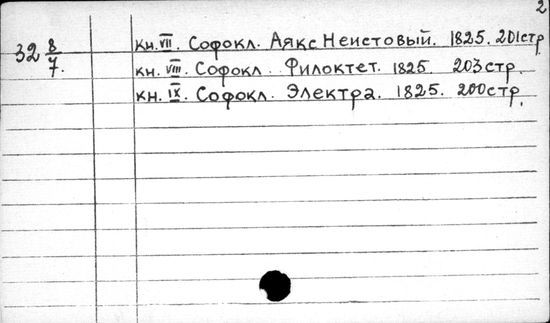 2
32 8/7. кн. VII. Софокл. Аякс Неистовый. 1825. 201стр
кн. VIII. Софокл. Филоктет. 1825. 203стр.
кн. IX. Софокл. Электра. 1825. 200стр.